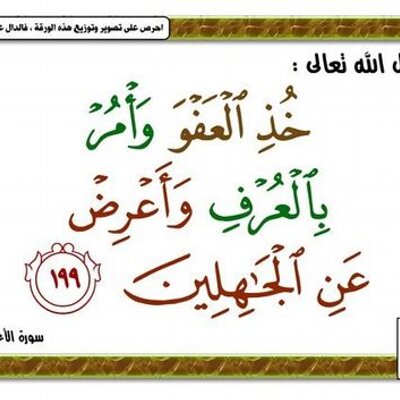 احرص على تصوير وتوزيع هذه الورقة ، فالدال
الله تعالى :
خُذِ ٱلْعَفْوَ وَأْمُرْ
بِٱلْعُرْفِ وَأَعْرِضْ
عَنِ ٱلْجَٰهِلِينَ ١٩٩
سورة